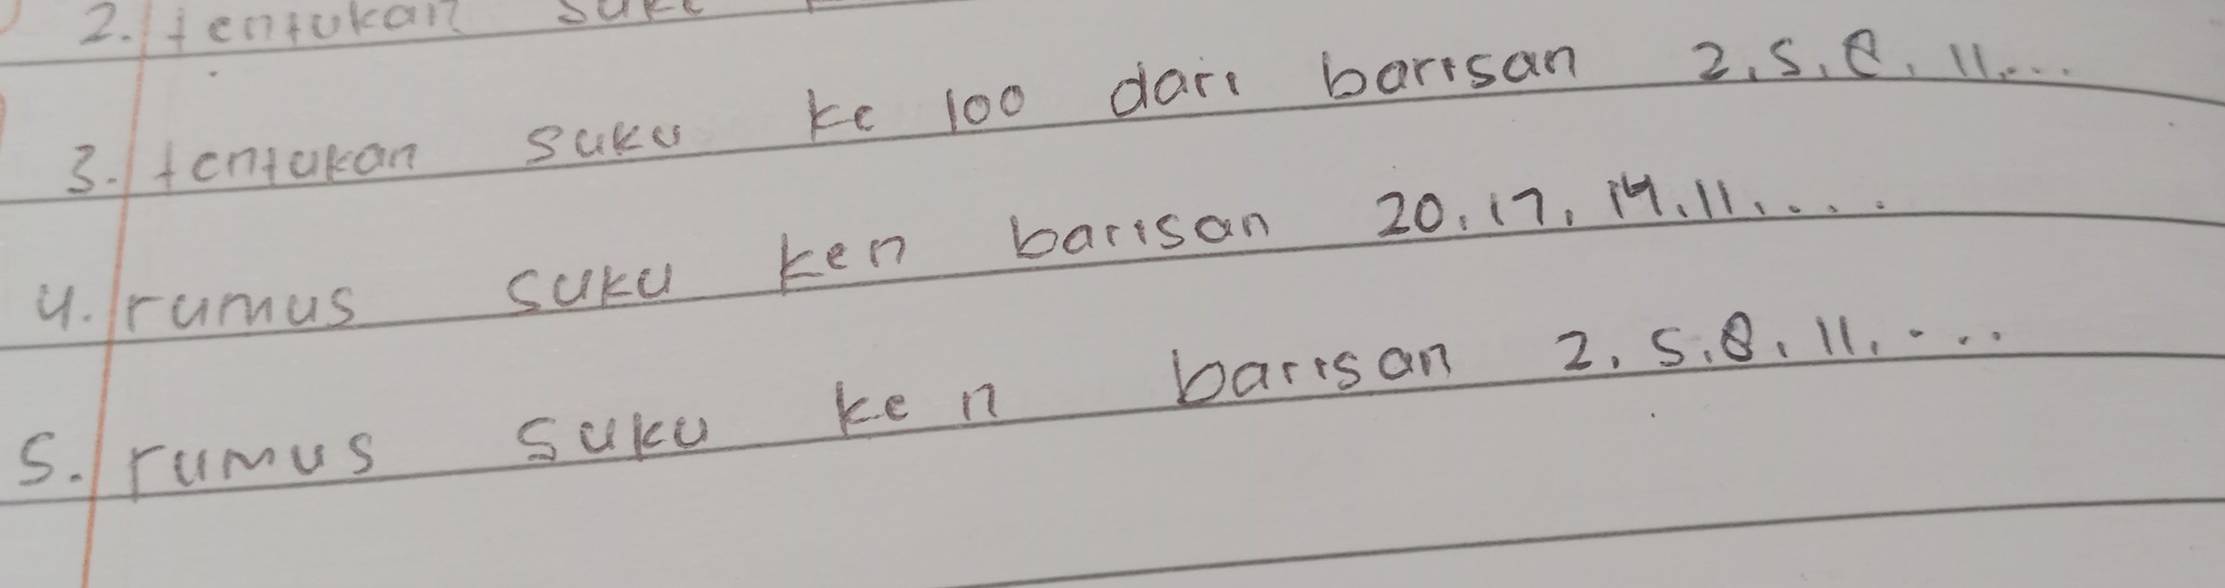 2. tentukan
3. tentukan suku ke 100 dari barisan 2, 5, 8, 11, ...
4. rumus suku ken barisan 20, 17, 14, 11, ....
5. rumus suku ke n barisan 2, 5, 8, 11, ....